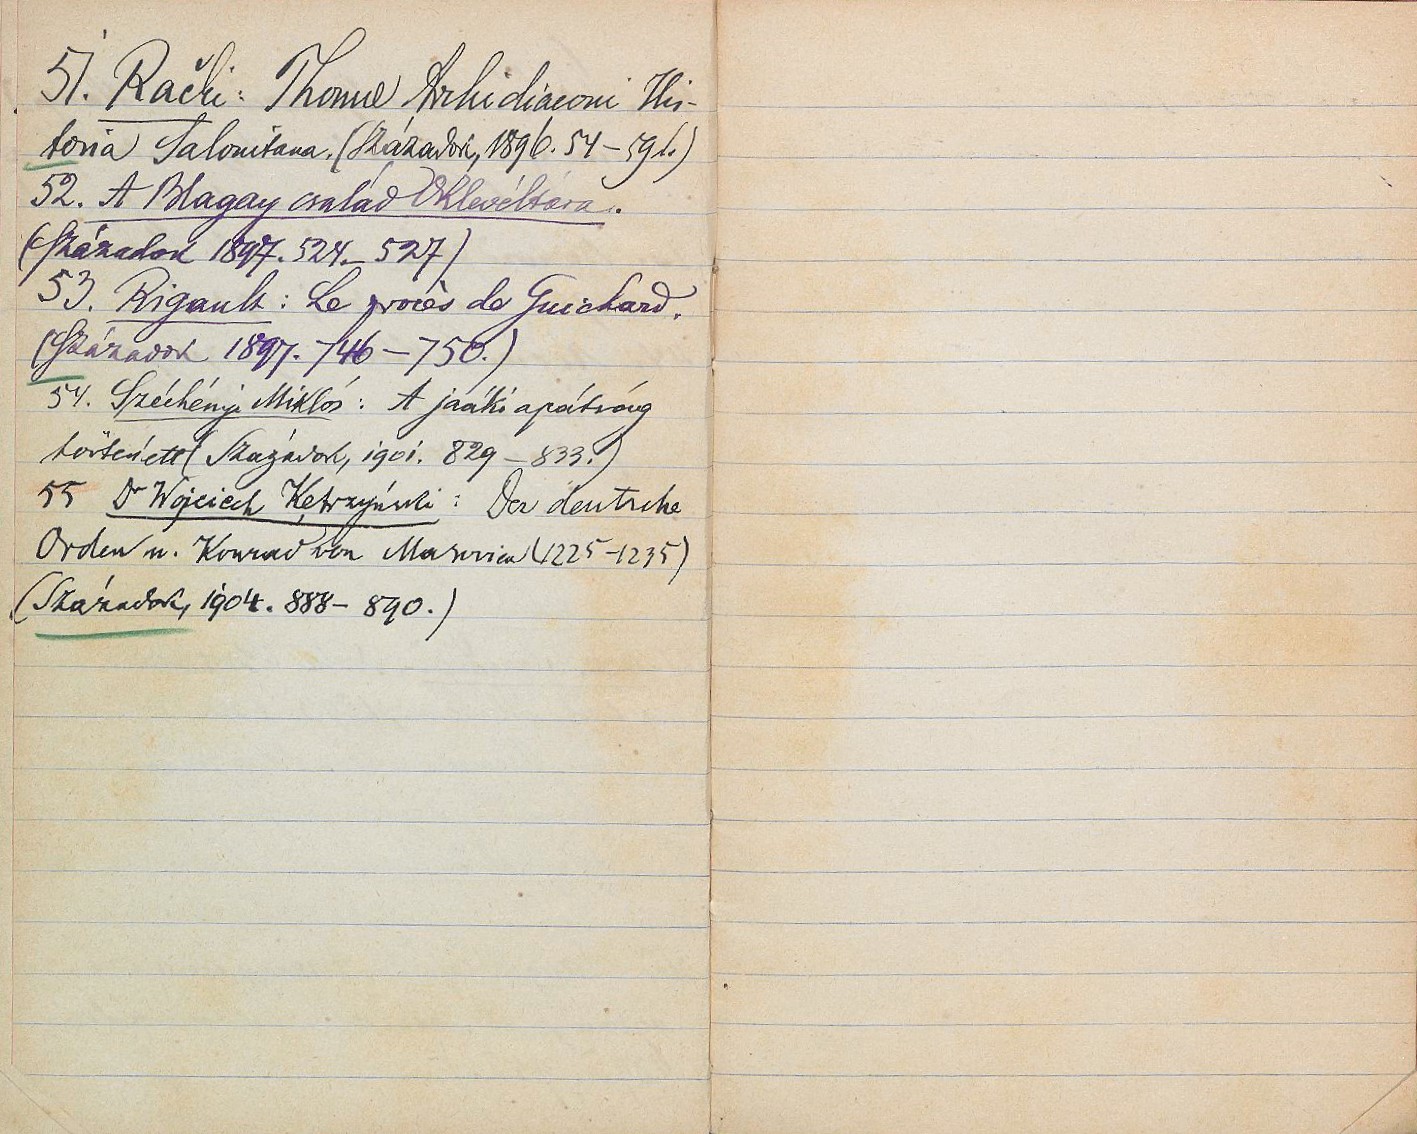 51. Rački: Thomae Archidiaconi His-
toria Salonitana. (Századok, 1896. 54–59 l.)
52. A Blagay család Oklevéltára.
(Századok 1897. 524.–527)
53. Rigault: Le procès de Guichard.
(Századok 1897. 746–750.)
54. Széchényi Miklós: A jaáki apátság
története (Századok, 1901. 829–833.)
55 Dr Wojciech Kętrzyński: Der deutsche
Orden u. Konrad von Masovien (1225–1235)
(Századok, 1904. 888–890.)